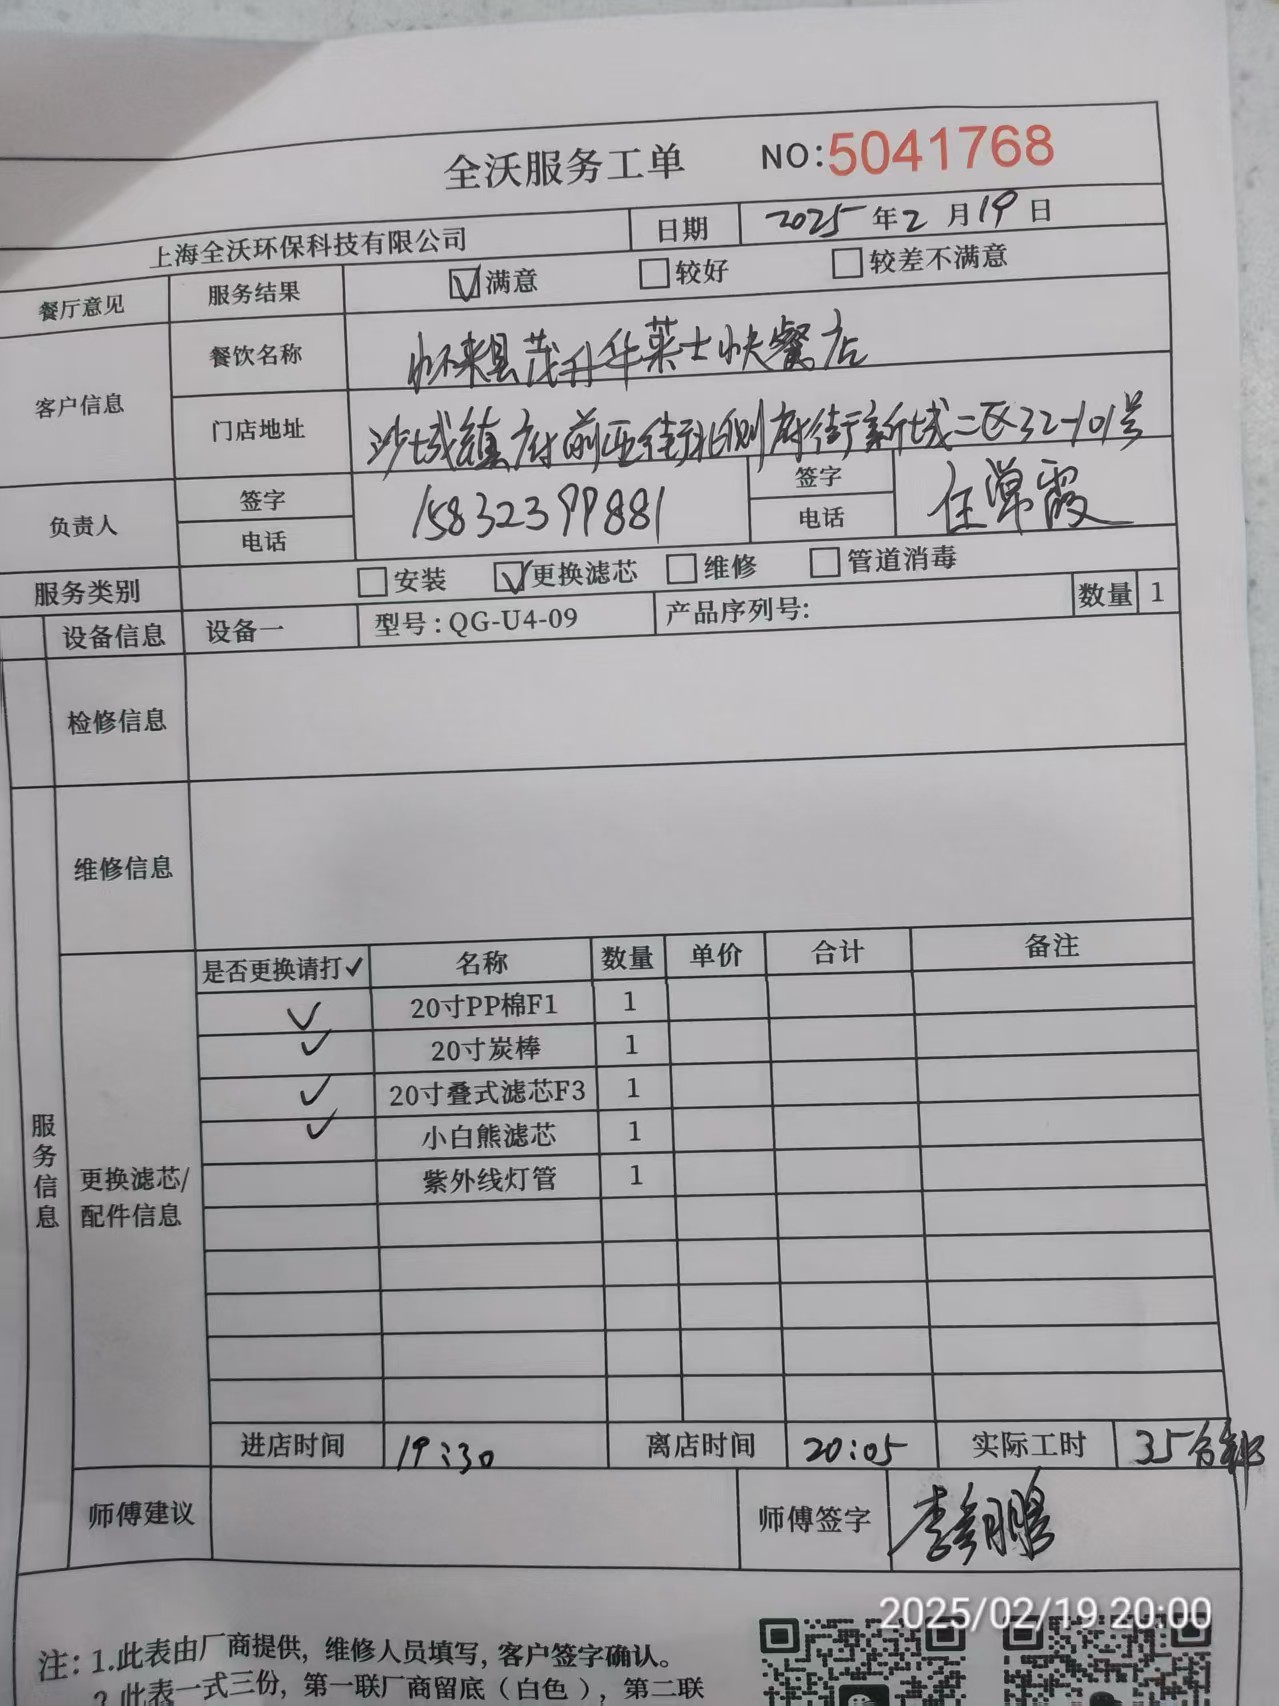 全沃服务工单 NO:5041768
上海全沃环保科技有限公司 日期 2025年2月19日
餐厅意见 服务结果 ☑满意 □较好 □较差不满意
客户信息 餐饮名称 怀来县茂升华莱士快餐店
门店地址 沙城镇府前西街北侧府街新城二区32-101号
负责人 签字 15832399881 签字 任常霞
电话 电话
服务类别 □安装 ☑更换滤芯 □维修 □管道消毒
设备信息 设备一 型号:QG-U4-09 产品序列号: 数量 1
检修信息
维修信息
服务信息
更换滤芯/
配件信息
是否更换请打✓ 名称 数量 单价 合计 备注
✓ 20寸PP棉F1 1
✓ 20寸炭棒 1
✓ 20寸叠式滤芯F3 1
✓ 小白熊滤芯 1
紫外线灯管 1
进店时间 19:30 离店时间 20:05 实际工时 35分钟
师傅建议 师傅签字 李翔鹏
2025/02/19 20:00
注:1.此表由厂商提供,维修人员填写,客户签字确认。
2.此表一式三份,第一联厂商留底(白色),第二联